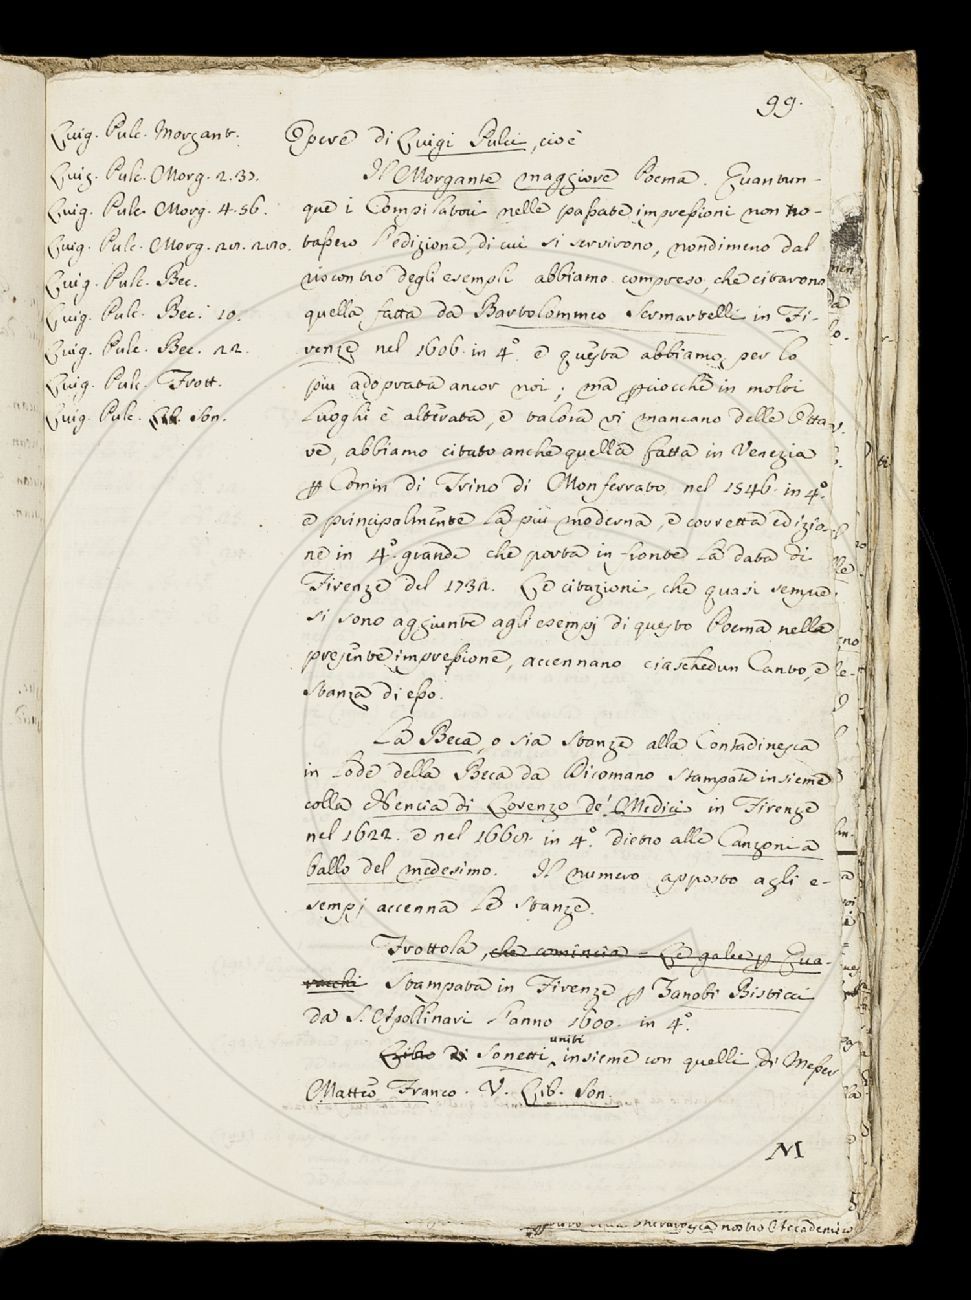 99.
Luig. Pulc. Morgant.
Luig. Pulc. Morg. 2. 30.
Luig. Pulc. Morg. 4. 56.
Luig. Pulc. Morg.
Luig. Pulc. Bec.
Luig. Pulc. Bec. 10.
Luig. Pulc. Bec. 22.
Luig. Pulc. Frott.
Luig. Pulc. Son.
Opere di Luigi Pulci, cioè
Il Morgante maggiore Poema. Quantun-
que i Compilatori nelle passate impressioni non no-
tassero l'edizione, di cui si servirono, nondimeno dal
riscontro degli esempli abbiamo compreso, che citarono
quella fatta da Bartolommeo Sermartelli in Fi-
renze nel 1606. in 4.° e questa abbiamo per lo
più adoprata ancor noi; ma perciocchè in molti
luoghi è alterata, e talora vi mancano delle Otta
ve, abbiamo citato anche quella fatta in Venezia
per Comin di Trino di Monferrato nel 1546. in 4.°
e principalmente la più moderna, e corretta edizio-
ne in 4.° grande che porta in fronte la data di
Firenze del 1732. Le citazioni, che quasi sempre
si sono aggiunte agli esempj di questo Poema nella
presente impressione, accennano ciaschedun Canto, e
Stanza di esso.
La Beca, o sia Stanze alla Contadinesca
in lode della Beca da Dicomano stampate insieme
colla Nencia di Lorenzo de' Medici in Firenze
nel 1622. e nel in 4.° dietro alle Canzoni a
ballo del medesimo. Il numero apposto agli e-
sempj accenna le Stanze.
Frottola, che comincia = Le galee per Qua-
racchi Stampata in Firenze per Zanobi Bisticci
da S. Apollinari l'anno 1600. in 4.°
Libro di Sonetti uniti insieme con quelli di Messer
Matteo Franco. V. Lib. Son.
M
nostro Accademico